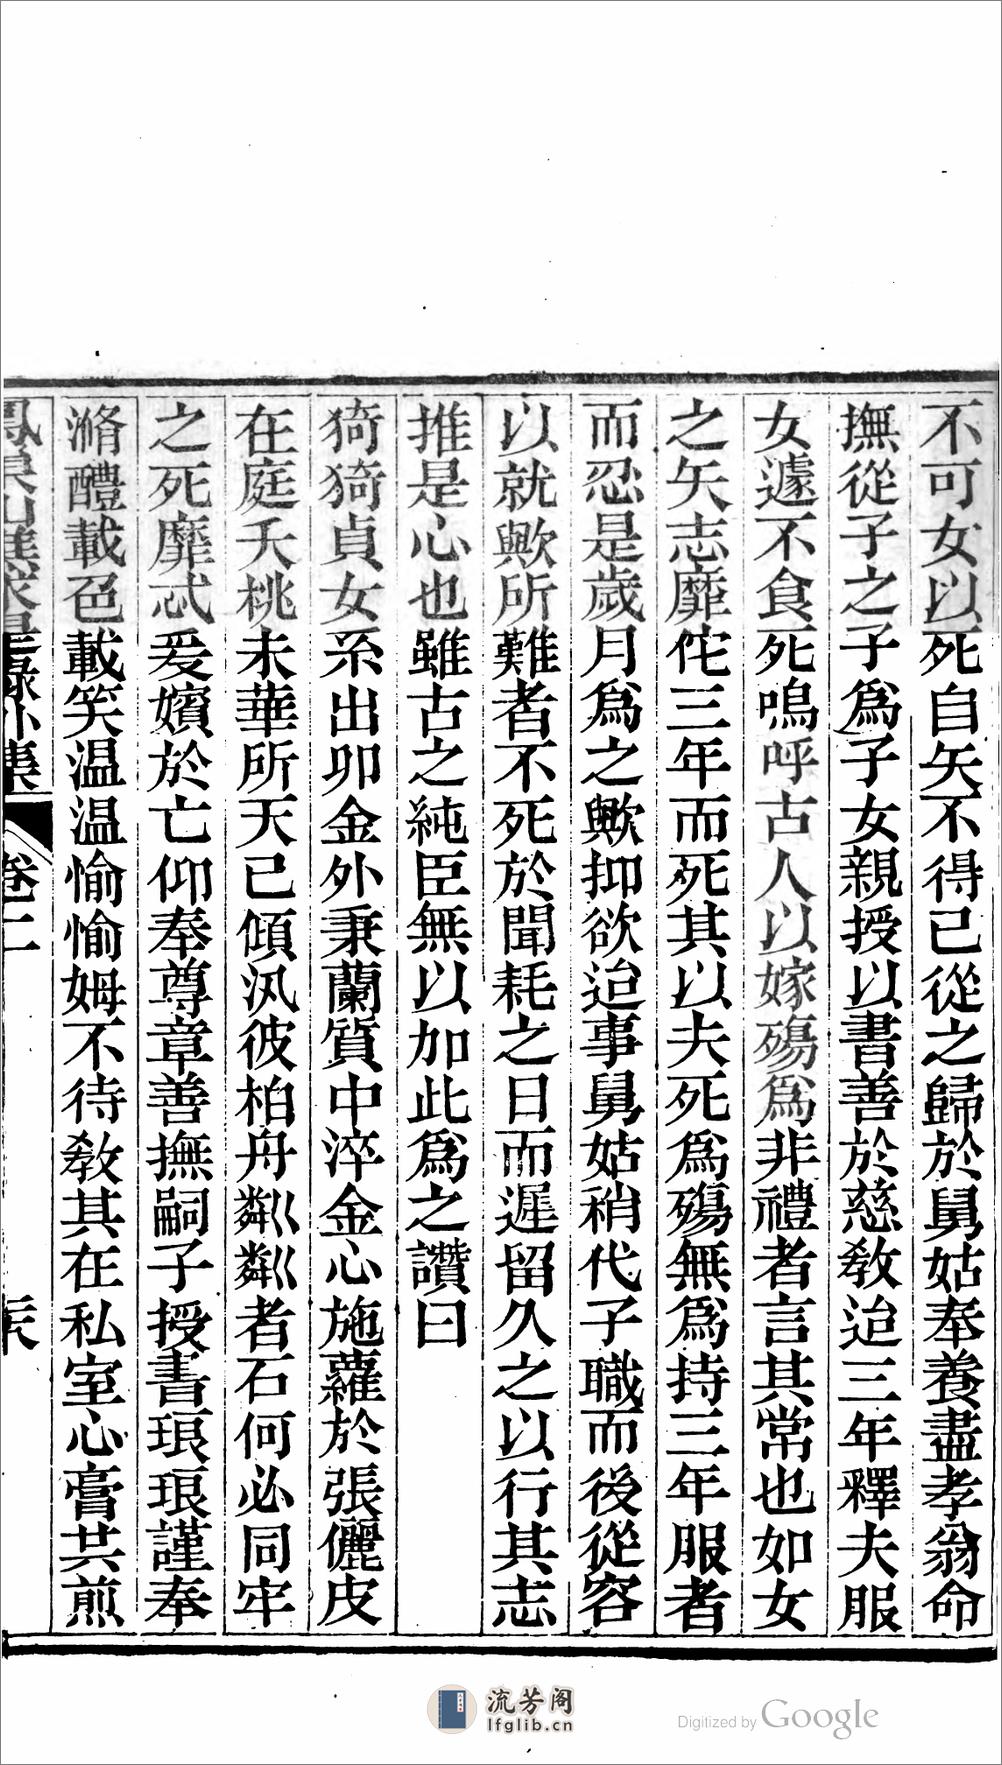 不可女以死自矢不得已從之歸於舅姑奉養盡孝翁命
撫從子之子爲子女親授以書善於慈敎迨三年釋夫服
女遽不食死嗚呼古人以嫁殤爲非禮者言其常也如女
之矢志靡佗三年而死其以夫死爲殤無爲持三年服者
而忍是歲月爲之歟抑欲迨事舅姑稍代子職而後從容
以就歟所難者不死於聞耗之日而遲留久之以行其志
推是心也雖古之純臣無以加此爲之讚曰
猗猗貞女系出卯金外秉蘭質中淬金心施蘿於張儷皮
在庭夭桃未華所天已傾汎彼柏舟粼粼者石何必同牢
之死靡忒爰嬪於亡仰奉尊章善撫嗣子授書琅琅謹奉
滫醴載色載笑温温愉愉姆不待敎其在私室心膏共煎
卷二
流芳阁
lfglib.cn
Digitized by Google